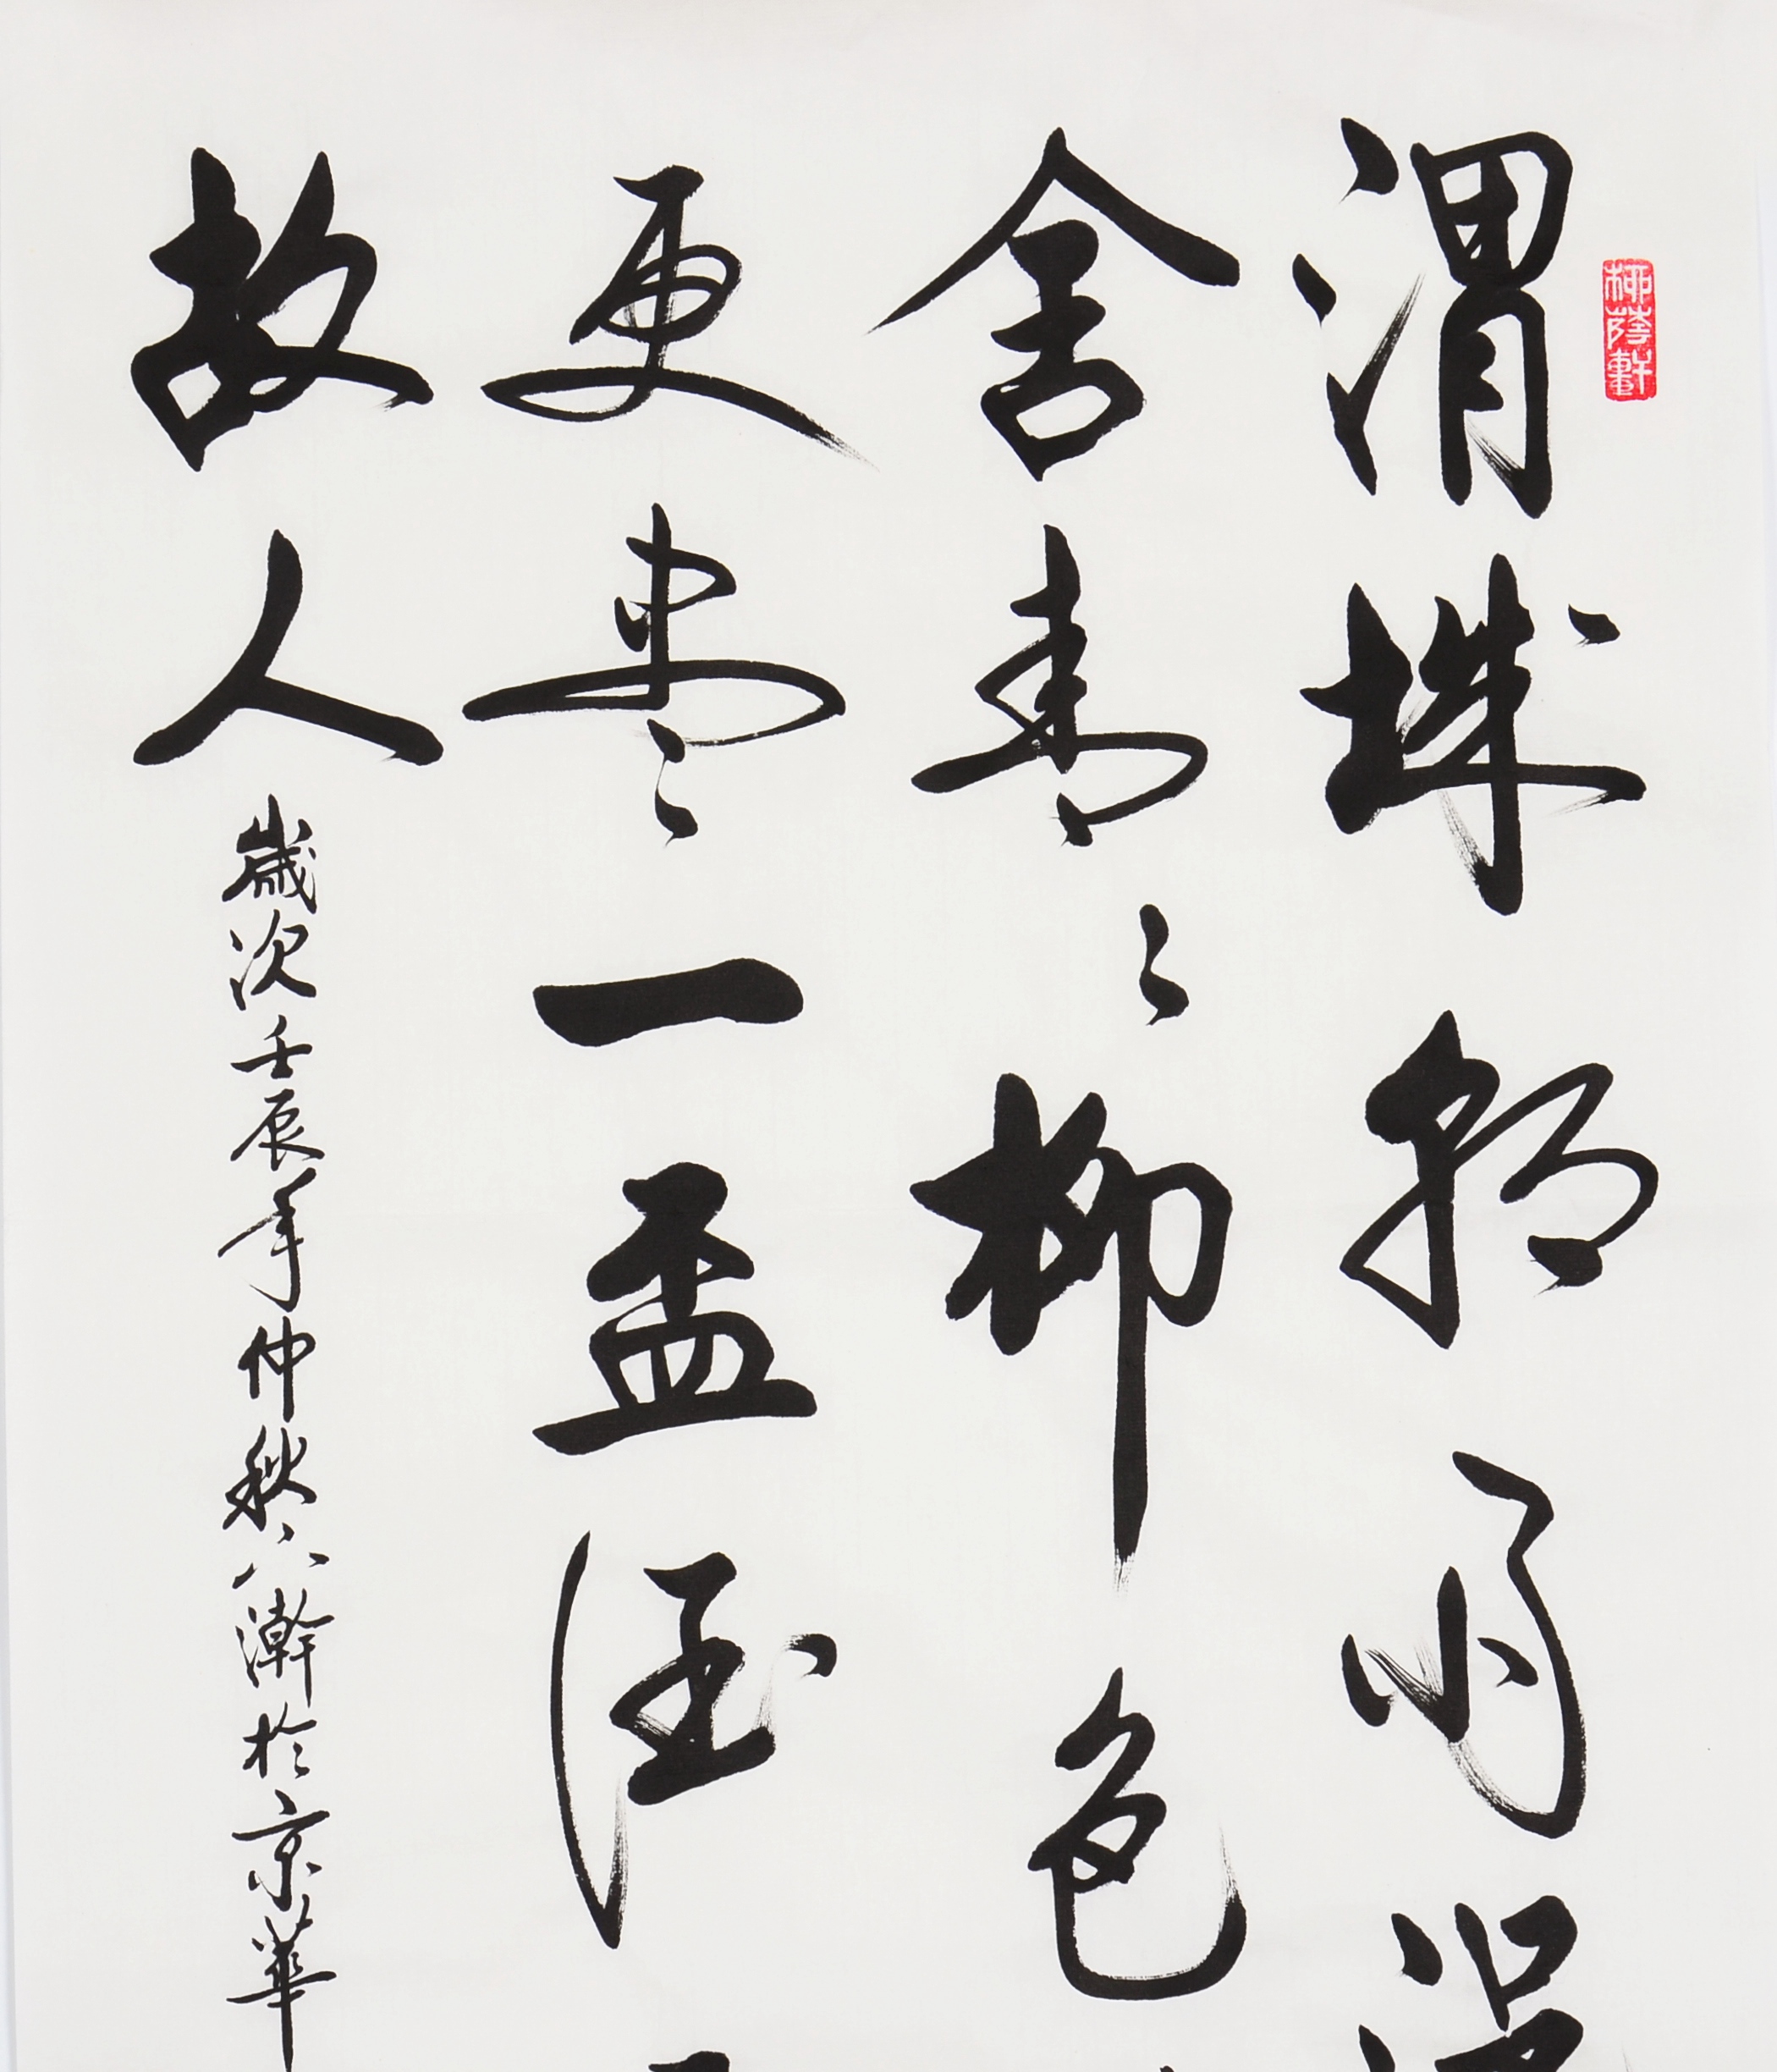 柳蔭軒
渭城朝雨
舍青〻柳色
更盡一盃酒
故人
歲次壬辰年仲秋瀚於京華